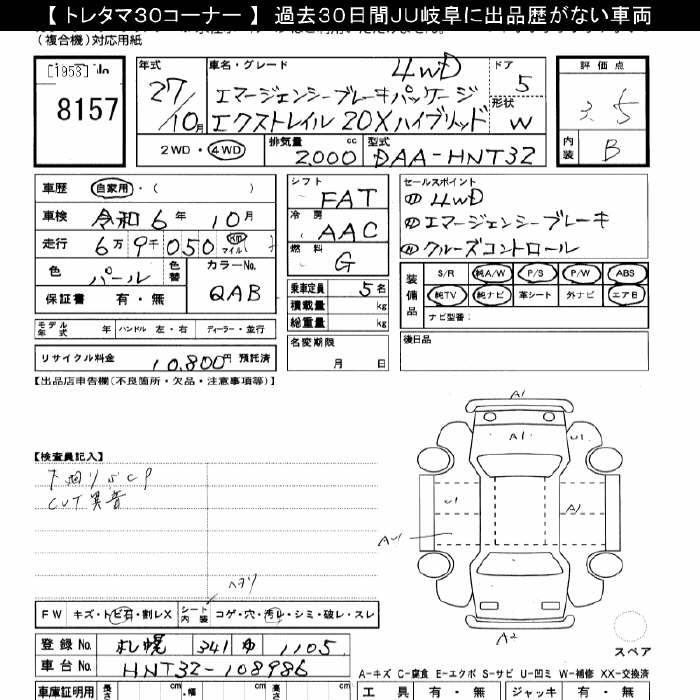 【 トレタマ30コーナー 】 過去30日間JU岐阜に出品歴がない車両
(複合機)対応用紙
[1953] No
8157
年式 車名・グレード ドア 評価点
4WD 5
27/10月
エマージェンシーブレーキパッケージ 形状 3.5
エクストレイル 20Xハイブリッド W
2WD・4WD 排気量 2,000 cc 型式 DAA-HNT32 内装 B
車歴 自家用・( ) シフト FAT セールスポイント
車検 令和 6年 10月 冷房 AAC ① 4WD
走行 6万9千050 Km マイル 燃料 G ② エマージェンシーブレーキ
色 パール 色替 カラーNo. QAB ③ クルーズコントロール
保証書 有・無 乗車定員 5名
積載量 kg
総重量 kg
装備品 S/R 純A/W P/S P/W ABS
純TV 純ナビ 革シート 外ナビ エアB
ナビ型番:
モデル年式 年 ハンドル 左・右 ディーラー・並行 名変期限 月 日 後日品
リサイクル料金 10,800円 預託済
【出品店申告欄(不良箇所・欠品・注意事項等)】
A1
A1 U1
【検査員記入】
CVT異音
U1 A1
ヘタリ
FW キズ・トビ石・割レX シート内装 コゲ・穴・汚レ・シミ・破レ・スレ
A2
スペア
登録No. 札幌 341 ゆ 1105
車台No. HNT32-108986
A-キズ C-腐食 E-エクボ S-サビ U-凹ミ W-補修 XX-交換済
車庫証明用 長さ cm 幅 cm 高さ cm 工具 有・無 ジャッキ 有・無